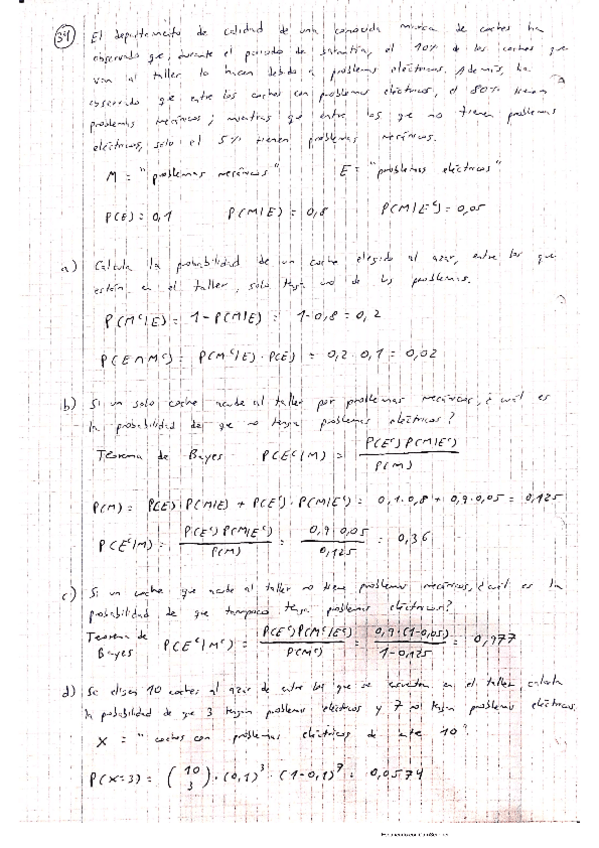 39) El departamento de calidad de una conocida marca de coches ha
observado que, durante el periodo de garantía, el 10% de los coches que
van al taller lo hacen debido a problemas eléctricos. Además, ha
observado que entre los coches con problemas eléctricos, el 80% tienen
problemas mecánicos; mientras que entre los que no tienen problemas
eléctricos, solo el 5% tienen problemas mecánicos.
M = "problemas mecánicos" E = "problemas eléctricos"
P(E) = 0,1 P(M|E) = 0,8 P(M|Eᶜ) = 0,05
a) Calcula la probabilidad de un coche elegido al azar, entre los que
están en el taller, solo tenga uno de los problemas.
P(Mᶜ|E) = 1 - P(M|E) = 1 - 0,8 = 0,2
P(E ∩ Mᶜ) = P(Mᶜ|E) · P(E) = 0,2 · 0,1 = 0,02
b) Si un solo coche acude al taller por problemas mecánicos, ¿cuál es
la probabilidad de que no tenga problemas eléctricos?
Teorema de Bayes P(Eᶜ|M) = P(Eᶜ) P(M|Eᶜ) / P(M)
P(M) = P(E) · P(M|E) + P(Eᶜ) · P(M|Eᶜ) = 0,1 · 0,8 + 0,9 · 0,05 = 0,125
P(Eᶜ|M) = P(Eᶜ) P(M|Eᶜ) / P(M) = 0,9 · 0,05 / 0,125 = 0,36
c) Si un coche que acude al taller no tiene problemas mecánicos, ¿cuál es la
probabilidad de que tampoco tenga problemas eléctricos?
Teorema de Bayes P(Eᶜ|Mᶜ) = P(Eᶜ) P(Mᶜ|Eᶜ) / P(Mᶜ) = 0,9 · (1-0,05) / 1-0,125 = 0,977
d) Se eligen 10 coches al azar de entre los que se encuentran en el taller calcula
la probabilidad de que 3 tengan problemas eléctricos y 7 no tengan problemas eléctricos.
X = "coches con problemas eléctricos de entre 10".
P(X=3) = (10 3) · (0,1)³ · (1-0,1)⁷ = 0,0574